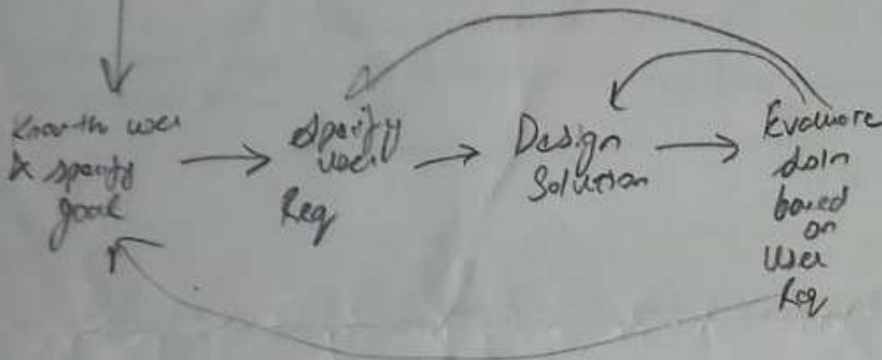 Know the user
& specify
goal
Specify
user
Req
Design
Solution
Evaluate
soln
based
on
User
Req